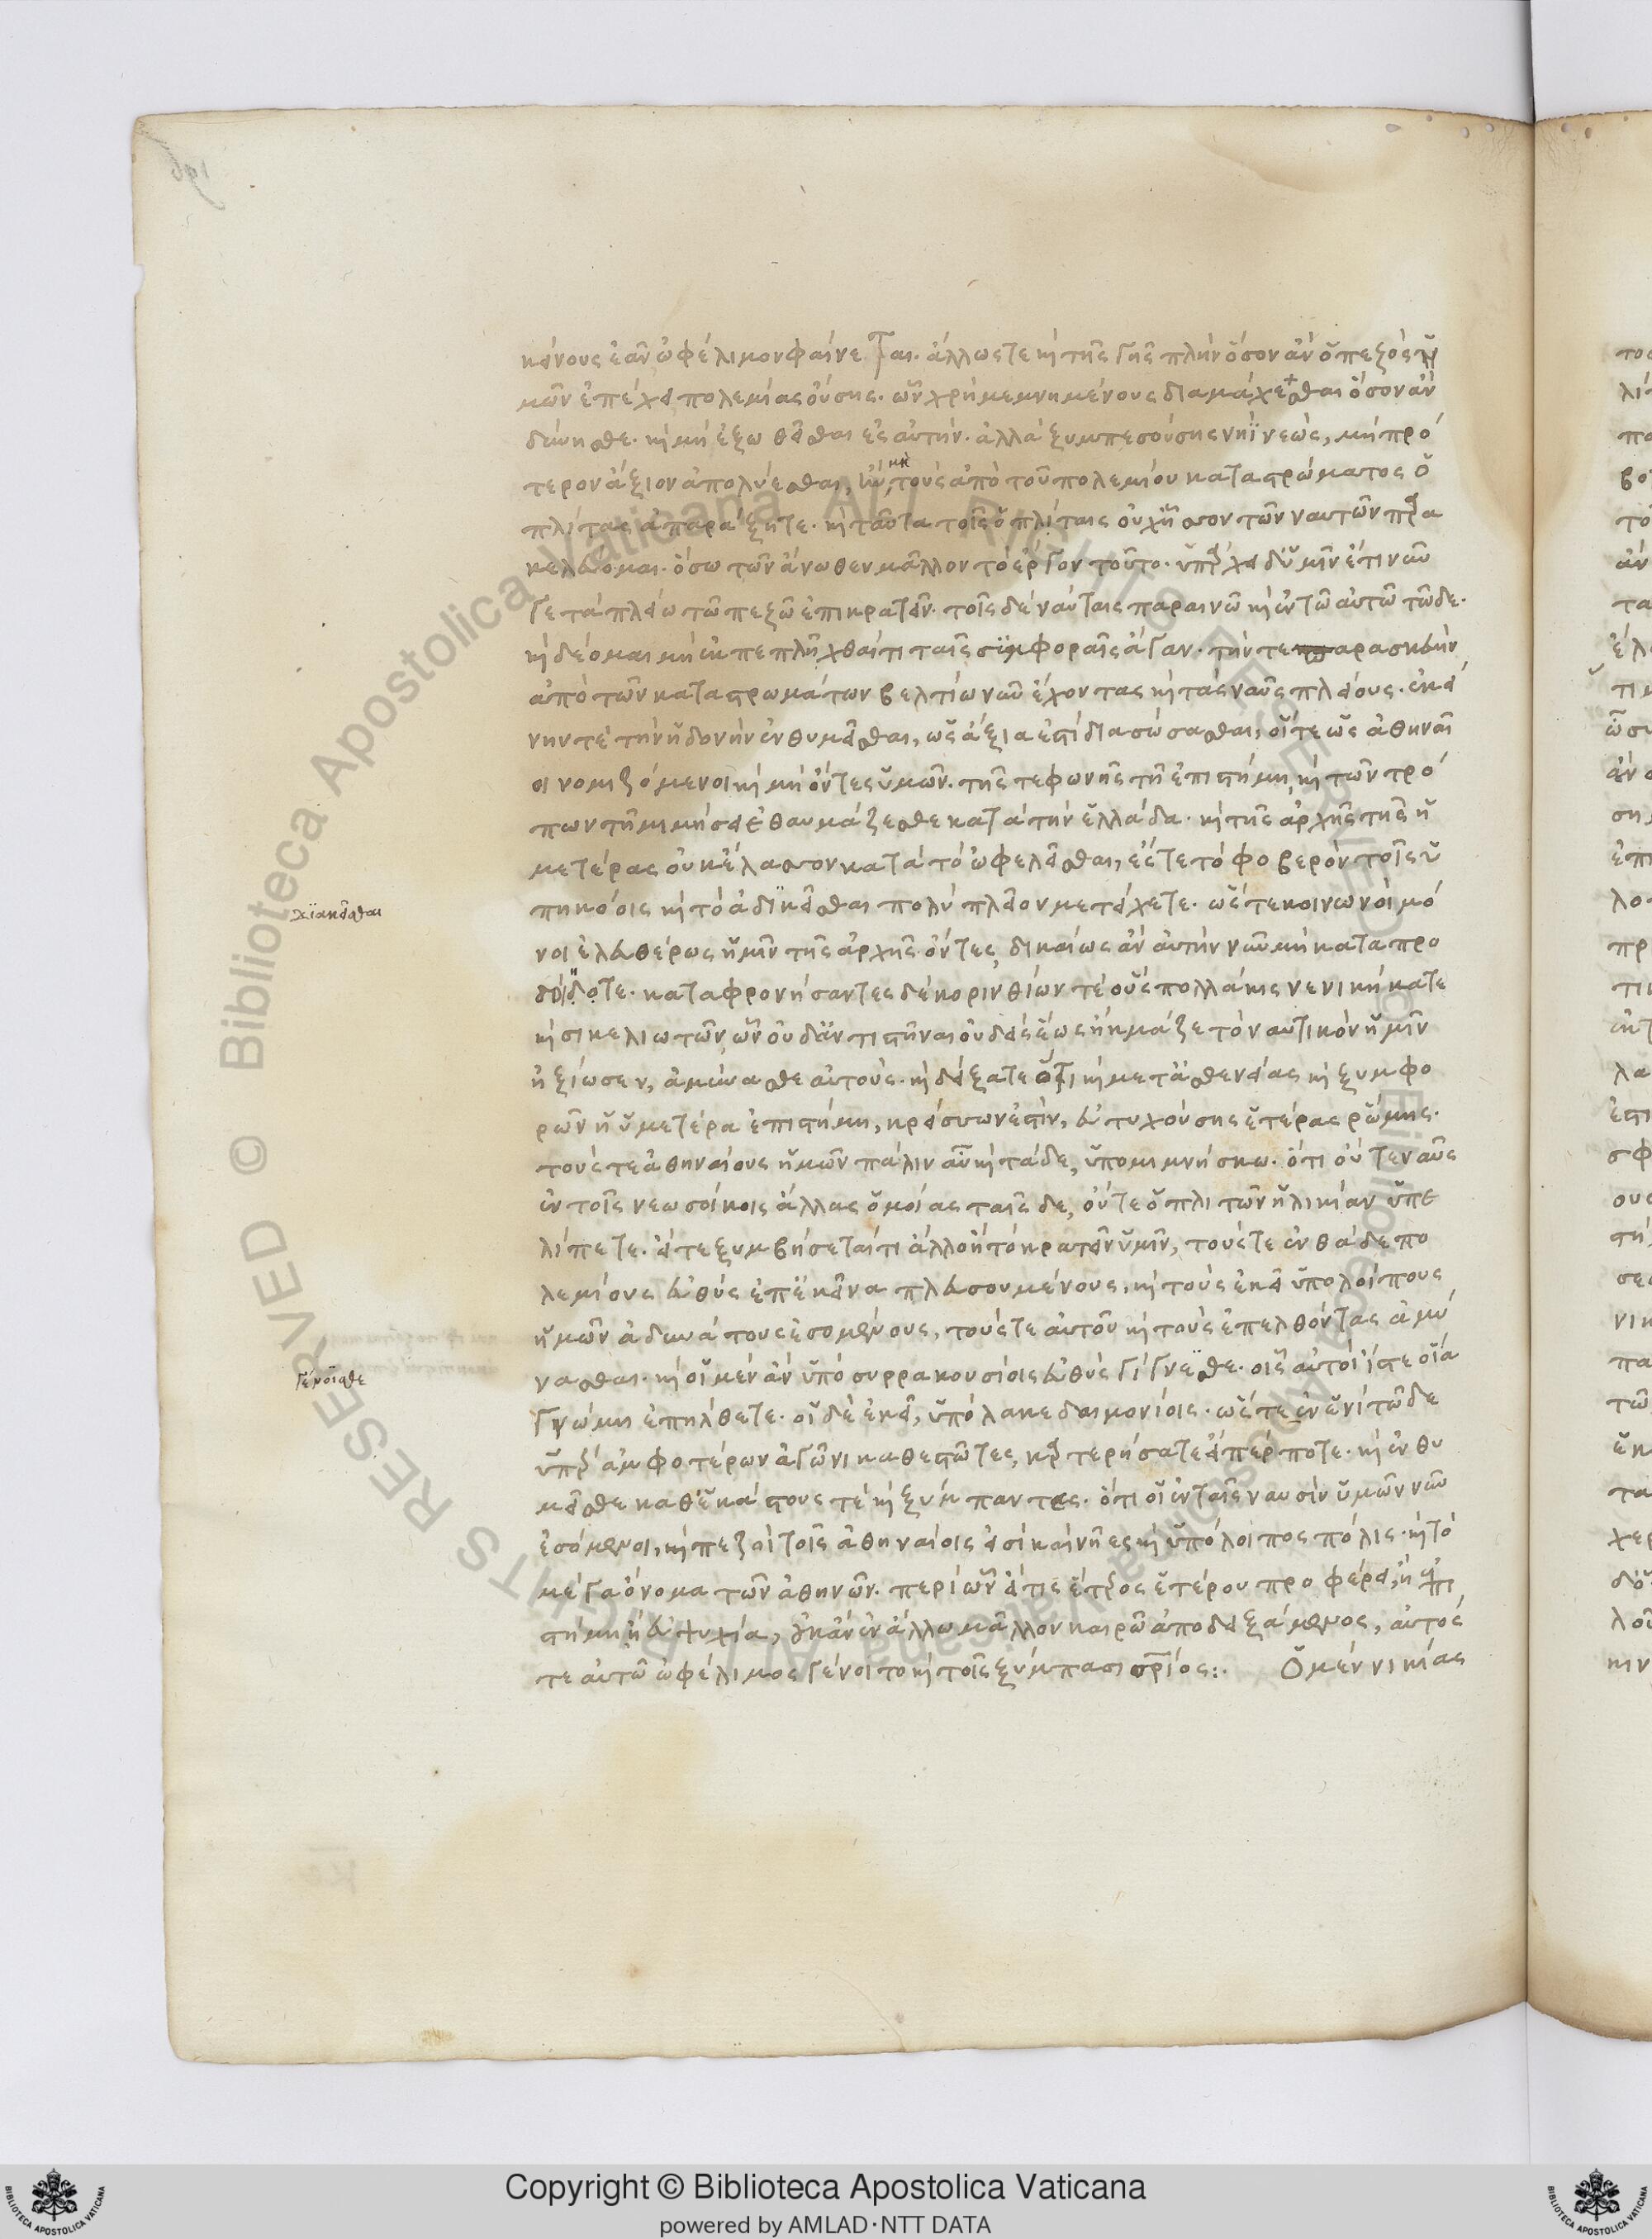 κείνους ἐᾶν ὠφέλιμον φαίνεται. ἄλλως τε καὶ τῆς γῆς πλὴν ὅσον ἂν ὁ πεζὸς ἡ
μῶν ἐπέχει πολεμίας οὔσης. ὧν χρὴ μεμνημένους διαμάχεσθαι ὅσον ἂν
δύνησθε. καὶ μὴ ἐξωθεῖσθαι ἐς αὐτήν. ἀλλὰ ξυμπεσούσης νηῒ νεώς, μὴ πρό
τερον ἀξιοῦν ἀπολύεσθαι, ἢ τοὺς ἀπὸ τοῦ πολεμίου καταστρώματος ὁ
πλίτας ἀπαράξητε. καὶ ταῦτα τοῖς ὁπλίταις οὐχ ἧσσον τῶν ναυτῶν παρα
κελεύομαι. ὅσω τῶν ἄνωθεν μᾶλλον τὸ ἔργον τοῦτο. ὑπάρχει δ' ὑμῖν ἔτι νῦν
γε τὰ πλείω τῶ πεζῶ ἐπικρατεῖν. τοῖς δὲ ναύταις παραινῶ καὶ ἐν τῶ αὐτῶ τῶδε.
καὶ δέομαι μὴ ἐκπεπλῆχθαί τι ταῖς ξυμφοραῖς ἄγαν. τήν τε παρασκευὴν
ἀπὸ τῶν καταστρωμάτων βελτίω νῦν ἔχοντας καὶ τὰς ναῦς πλείους. ἐκεί
νην τε τὴν ἡδονὴν ἐνθυμεῖσθαι, ὡς ἀξία ἐστὶ διασώσασθαι, οἵ τέως ἀθηναῖ
οι νομιζόμενοι καὶ μὴ ὄντες ὑμῶν. τῆς τε φωνῆς τῇ ἐπιστήμη καὶ τῶν τρό
πων τῇ μιμήσει ἐθαυμάζεσθε κατὰ τὴν ἑλλάδα. καὶ τῆς ἀρχῆς τῆς ἡ
μετέρας οὐκ ἔλασσον κατὰ τὸ ὠφελεῖσθαι, ἔς τε τὸ φοβερὸν τοῖς ὑ
πηκόοις καὶ τὸ ἀδικεῖσθαι πολὺ πλεῖον μετείχετε. ὥστε κοινωνοὶ μό
νοι ἐλευθέρως ἡμῖν τῆς ἀρχῆς ὄντες, δικαίως ἂν αὐτὴν νῦν μὴ καταπρο
δίδοτε. καταφρονήσαντες δὲ κορινθίων τε οὓς πολλάκις νενικήκατε
καὶ σικελιωτῶν, ὧν οὐδ' ἀντιστῆναι οὐδεὶς ἕως ἤκμαζε τὸ ναυτικὸν ἡμῖν
ἠξίωσεν, ἀμύνασθε αὐτούς. καὶ δείξατε ὅτι καὶ μετ' ἀσθενείας καὶ ξυμφο
ρῶν ἡ ὑμετέρα ἐπιστήμη, κρείσσων ἐστὶν, εὐτυχούσης ἑτέρας ῥώμης.
τούς τε ἀθηναίους ἡμῶν πάλιν αὖ καὶ τάδε, ὑπομιμνήσκω. ὅτι οὔτε ναῦς
ἐν τοῖς νεωσοίκοις ἄλλας ὁμοίας ταῖσδε, οὔτε ὁπλιτῶν ἡλικίαν ὑπε
λίπετε. εἴ τε ξυμβήσεταί τι ἄλλο ἢ τὸ κρατεῖν ὑμῖν, τούς τε ἐνθάδε πο
λεμίους εὐθὺς ἐπ' ἐκεῖνα πλευσουμένους, καὶ τοὺς ἐκεῖ ὑπολοίπους
ἡμῶν ἀδυνάτους ἐσομένους, τούς τε αὐτοῦ καὶ τοὺς ἐπελθόντας ἀμύ
νασθαι. καὶ οἱ μὲν ἂν ὑπὸ συρρακουσίοις εὐθὺς γίγνεσθε. οἷς αὐτοὶ ἴστε οἵα
γνώμη ἐπήλθετε. οἱ δὲ ἐκεῖ, ὑπὸ λακεδαιμονίοις. ὥστε ἐν ἑνὶ τῶδε
ὑπὲρ ἀμφοτέρων ἀγῶνι καθεστῶτες, καρτερήσατε εἴπερ ποτε. καὶ ἐνθυ
μεῖσθε καθ' ἑκάστους τε καὶ ξύμπαντες. ὅτι οἱ ἐν ταῖς ναυσὶν ὑμῶν νῦν
ἐσόμενοι, καὶ πεζοὶ τοῖς ἀθηναίοις εἰσὶ καὶ νῆες καὶ ὑπόλοιπος πόλις. καὶ τὸ
μέγα ὄνομα τῶν ἀθηνῶν. περὶ ὧν εἴ τις ἕτερος ἑτέρου προφέρει, ἢ ἐπι
στήμη ἢ εὐψυχία, οὐκ ἂν ἐν ἄλλω μᾶλλον καιρῶ ἀποδειξάμενος, αὐτός
τε αὐτῶ ὠφέλιμος γένοιτο καὶ τοῖς ξύμπασι σωτήριος:. Ὁ μὲν νικίας
γένοισθε
Copyright © Biblioteca Apostolica Vaticana
powered by AMLAD·NTT DATA